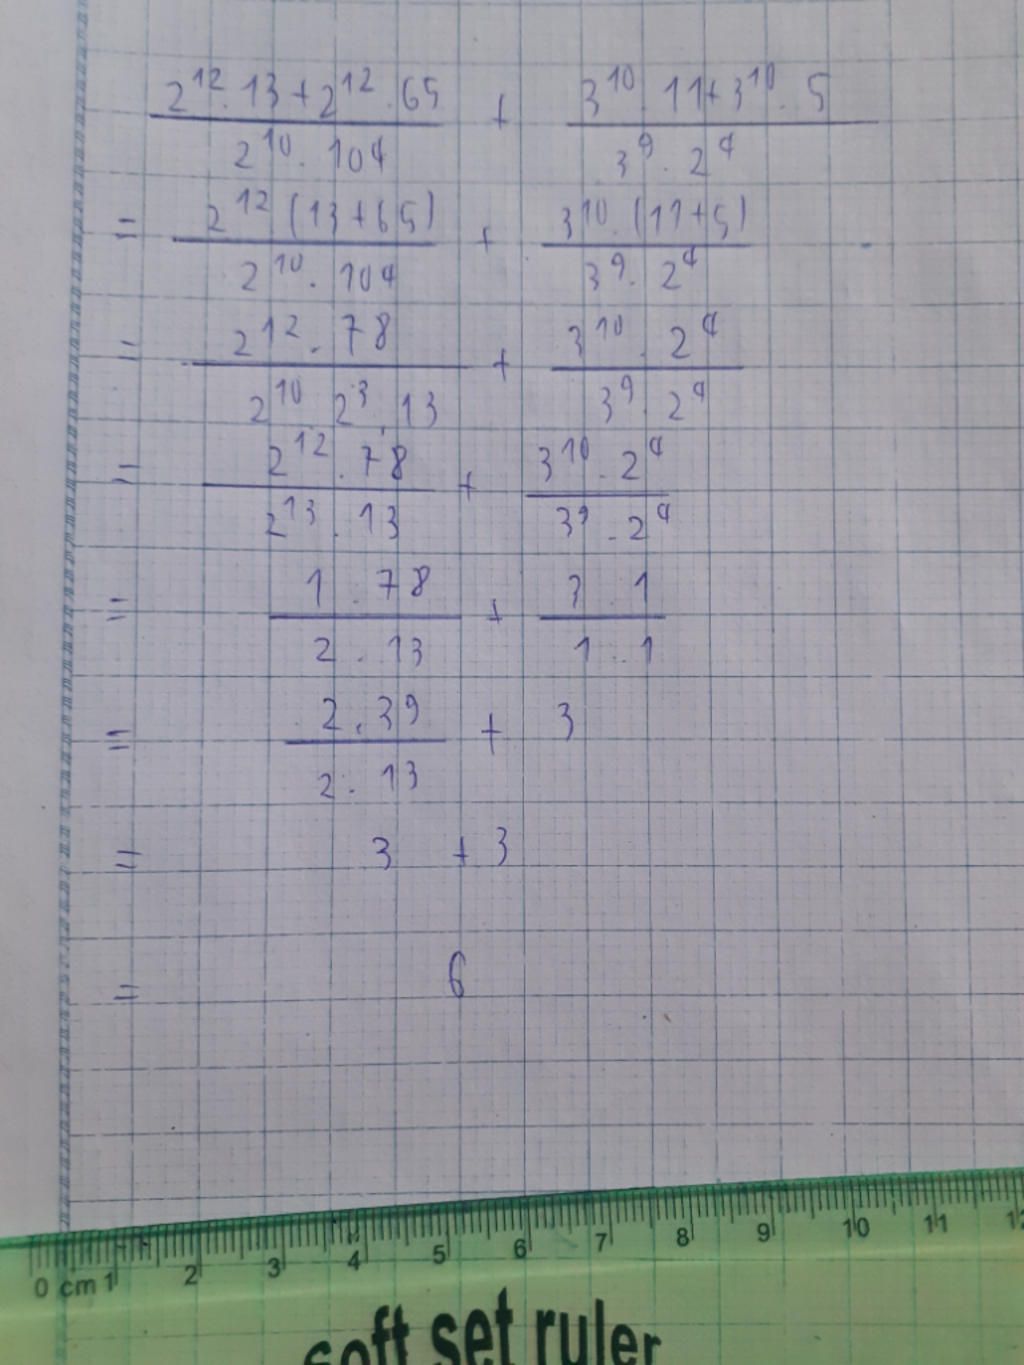 2^12 . 13 + 2^12 . 65 / 2^10 . 104 + 3^10 . 11 + 3^10 . 5 / 3^9 . 2^4
= 2^12 (13 + 65) / 2^10 . 104 + 3^10 . (11 + 5) / 3^9 . 2^4
= 2^12 . 78 / 2^10 . 2^3 . 13 + 3^10 . 2^4 / 3^9 . 2^4
= 2^12 . 78 / 2^13 . 13 + 3^10 . 2^4 / 3^9 . 2^4
= 1 . 78 / 2 . 13 + 3 . 1 / 1 . 1
= 2 . 39 / 2 . 13 + 3
= 3 + 3
= 6
0 cm 1 2 3 4 5 6 7 8 9 10 11 12
soft set ruler